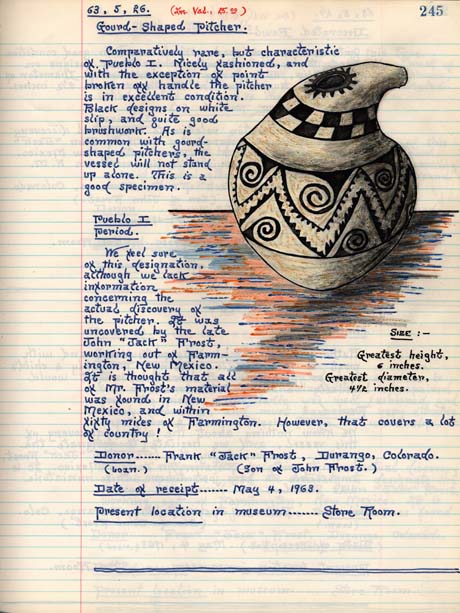 63. 5. 26. (In Val., 25.00)
245
Gourd-Shaped Pitcher.
Comparatively rare, but characteristic
of Pueblo I. Nicely fashioned, and
with the exception of point
broken off handle the pitcher
is in excellent condition.
Black designs on white
slip, and quite good
brushwork. As is
common with gourd-
shaped pitchers, the
vessel will not stand
up alone. This is a
good specimen.
Pueblo I
Period.
We feel sure
of this designation,
although we lack
information
concerning the
actual discovery of
the pitcher. It was
uncovered by the late
John "Jack" Frost,
working out of Farm-
ington, New Mexico.
It is thought that all
of Mr. Frost's material
was found in New
Mexico, and within
sixty miles of Farmington. However, that covers a lot
of country!
Size :-
Greatest height,
6 inches.
Greatest diameter,
4 1/2 inches.
Donor...... Frank "Jack" Frost, Durango, Colorado.
(Loan.) (Son of John Frost.)
Date of receipt....... May 4, 1963.
Present location in museum...... Store Room.